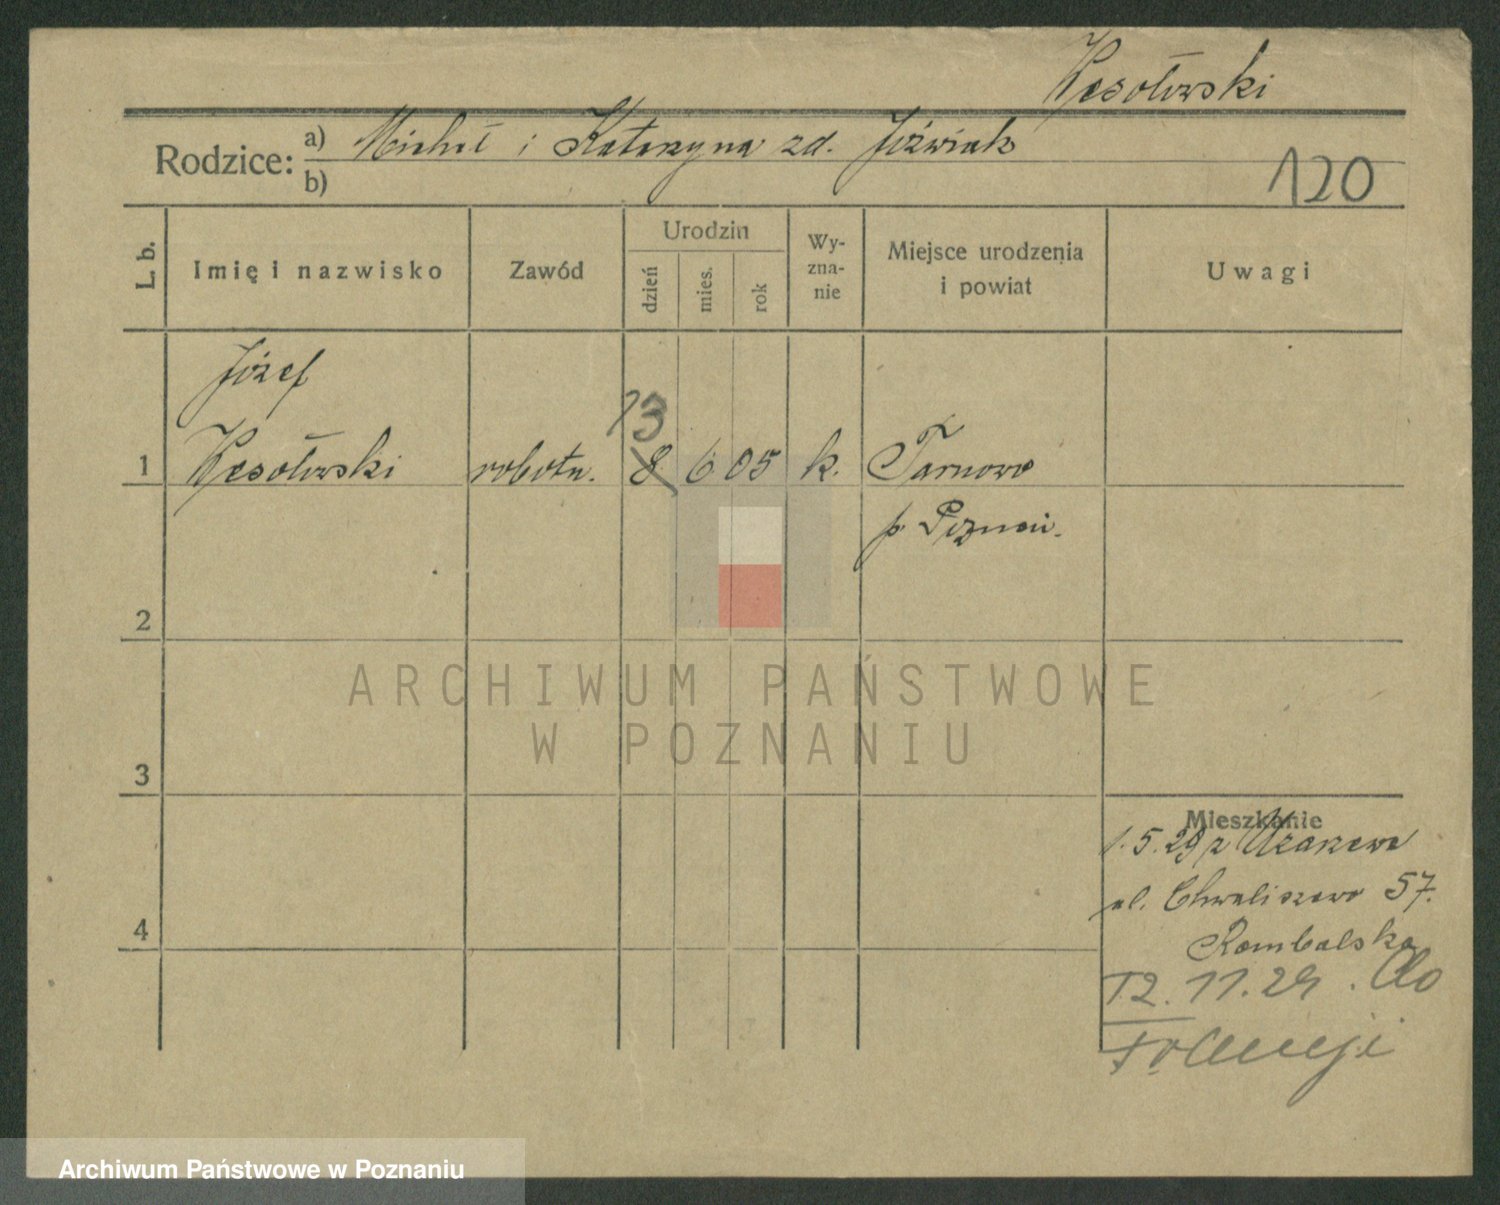 Wesołowski
Rodzice: a) Michał i Katarzyna zd. Jóźwiak
b)
120
L. b.
Imię i nazwisko
Zawód
Urodzin
dzień
mies.
rok
Wy-
zna-
nie
Miejsce urodzenia
i powiat
Uwagi
Józef
13
1 Wesołowski robotn. 8 6 05 k. Tarnowo
p. Poznań.
2
3
4
ARCHIWUM PAŃSTWOWE
W POZNANIU
Mieszkanie
1.5.29 z Uzarzewa
ul. Chwaliszewo 57.
Rombalska
12.11.29. do
Francji
Archiwum Państwowe w Poznaniu